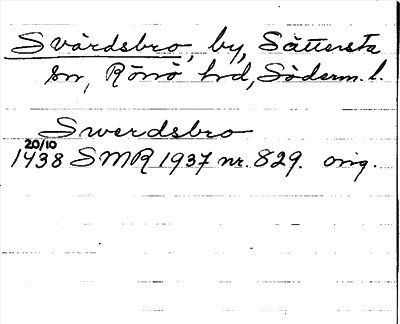 Svärdsbro, by, Sättersta
sn, Rönö hd, Söderm. l.
Swerdsbro
20/10
1438 SMR 1937 nr. 829. orig.